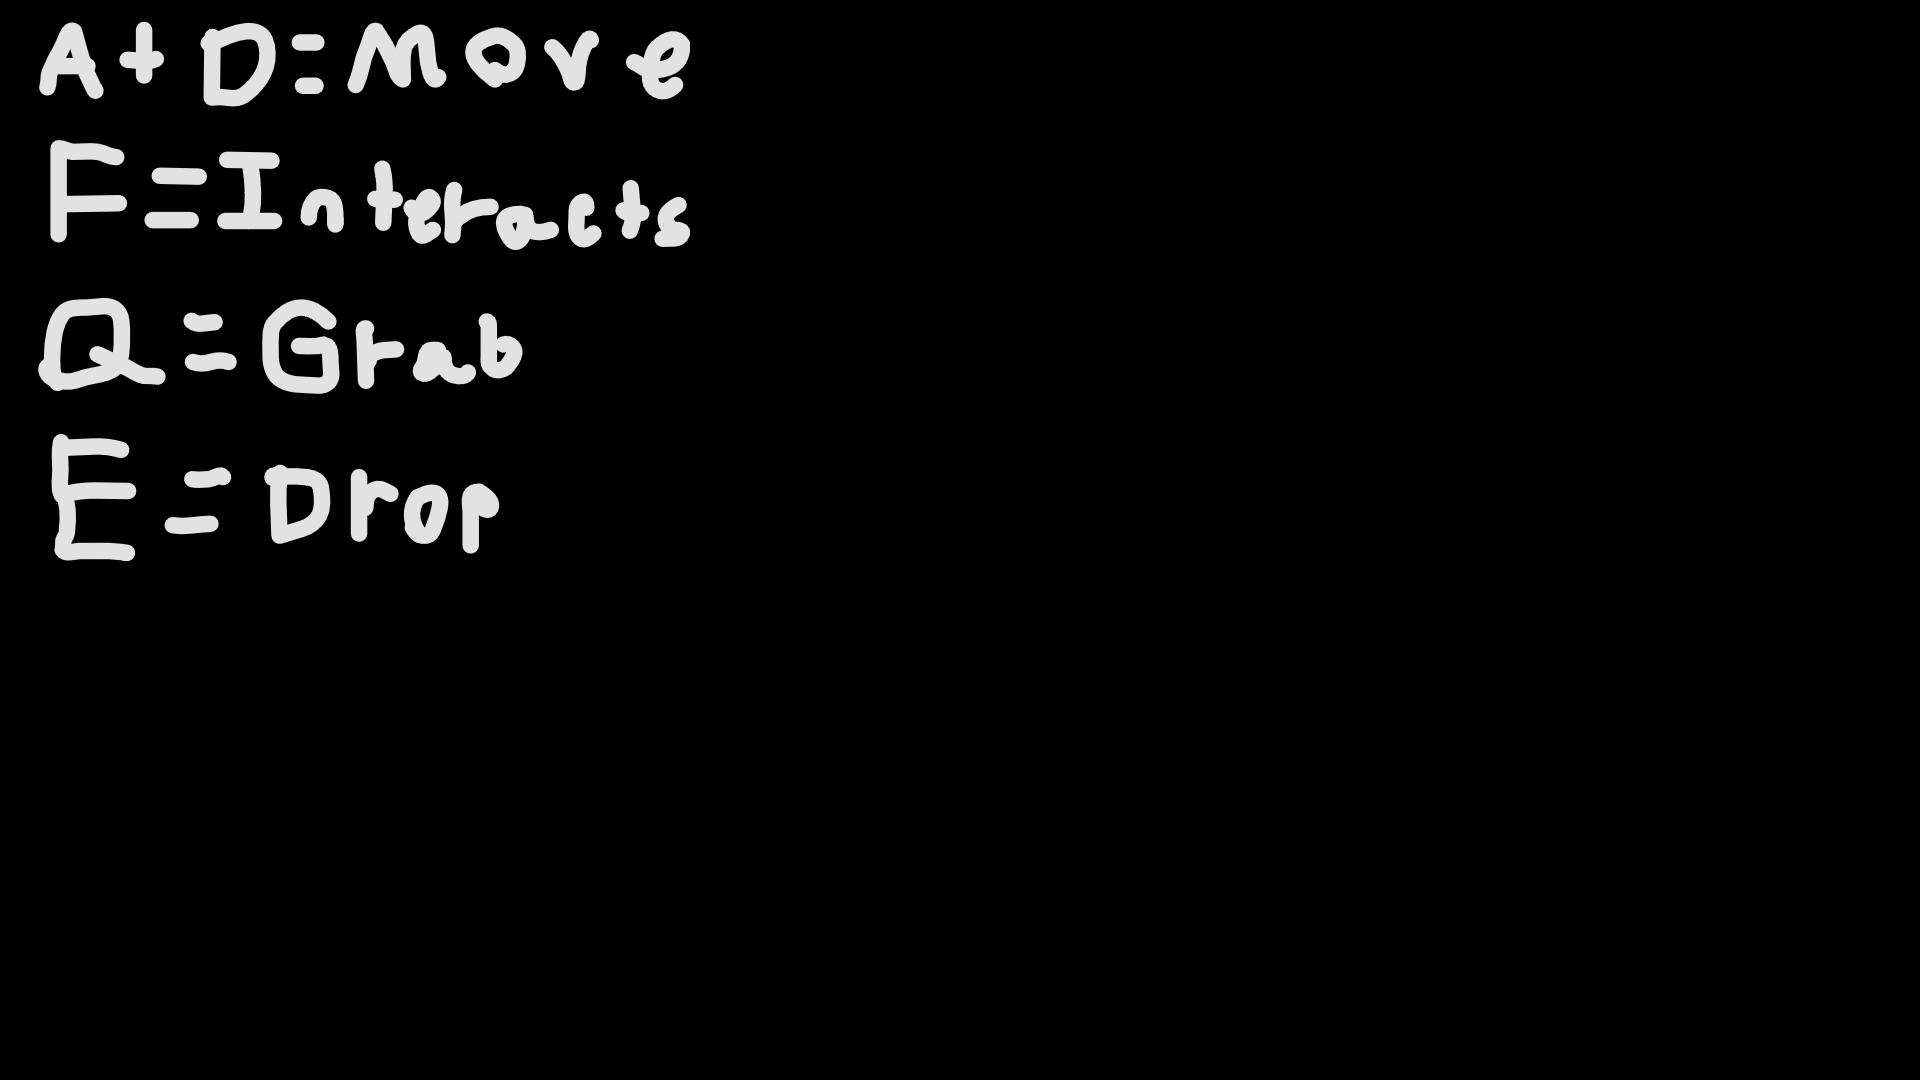 A+D=Move
F=Interacts
Q=Grab
E=Drop